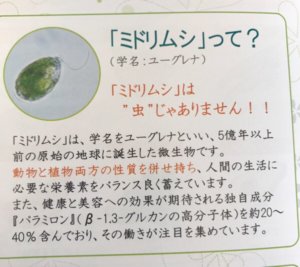 「ミドリムシ」って？
（学名：ユーグレナ）
「ミドリムシ」は
”虫”じゃありません！！
「ミドリムシ」は、学名をユーグレナといい、5億年以上
前の原始の地球に誕生した微生物です。
動物と植物両方の性質を併せ持ち、人間の生活に
必要な栄養素をバランス良く蓄えています。
また、健康と美容への効果が期待される独自成分
『パラミロン』（β-1,3-グルカンの高分子体）を約20～
40％含んでおり、その働きが注目を集めています。